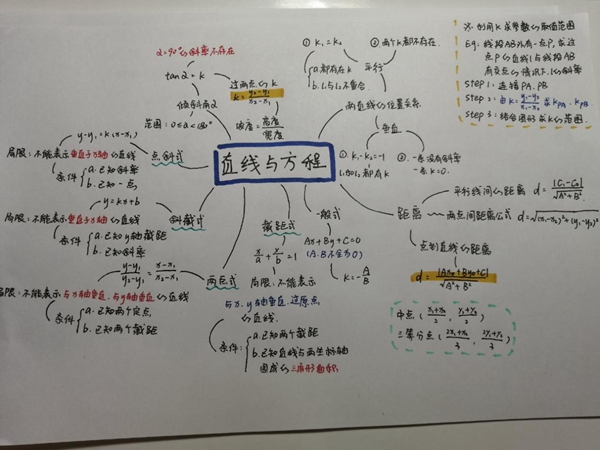 α=90°的斜率不存在
tanα=k
倾斜角α
范围:0≤α<180°
过两点的k
k=\frac{y₂-y₁}{x₂-x₁}
坡度=\frac{高度}{宽度}
① k₁=k₂
② 两个k都不存在
{a.都存在k
b.l₁与l₂不重合
平行
两直线的位置关系
垂直
① k₁·k₂=-1
l₁和l₂都有k
② 一条没有斜率
一条k=0
※利用k求参数的取值范围
Eg:线段AB外有一点P,求过
点P的直线l与线段AB
有交点的情况下,l的斜率
step1:连接PA.PB
step2:由k=\frac{y₁-y₂}{x₁-x₂}求k_{PA}.k_{PB}
step3:结合图形求k的范围
直线与方程
y-y₁=k(x-x₁)
点斜式
局限:不能表示垂直于x轴的直线
条件{a.已知斜率
b.已知一点
y=kx+b
斜截式
局限:不能表示垂直于x轴的直线
条件{a.已知y轴截距
b.已知斜率
\frac{y-y₁}{y₂-y₁}=\frac{x-x₁}{x₂-x₁}
两点式
局限:不能表示与x轴垂直、与y轴垂直的直线
条件{a.已知两个定点
b.已知两个截距
截距式
\frac{x}{a}+\frac{y}{b}=1
局限:不能表示
与x.y轴垂直、过原点
的直线
条件:{a.已知两个截距
b.已知直线与两坐标轴
围成的三角形面积
一般式
Ax+By+C=0
(A.B不全为0)
k=-\frac{A}{B}
距离
平行线间的距离 d=\frac{|C₁-C₂|}{\sqrt{A²+B²}}
两点间距离公式 d=\sqrt{(x₁-x₂)²+(y₁-y₂)²}
点到直线的距离
d=\frac{|Ax₀+By₀+C|}{\sqrt{A²+B²}}
中点(\frac{x₁+x₂}{2},\frac{y₁+y₂}{2})
三等分点(\frac{2x₁+x₂}{3},\frac{2y₁+y₂}{3})